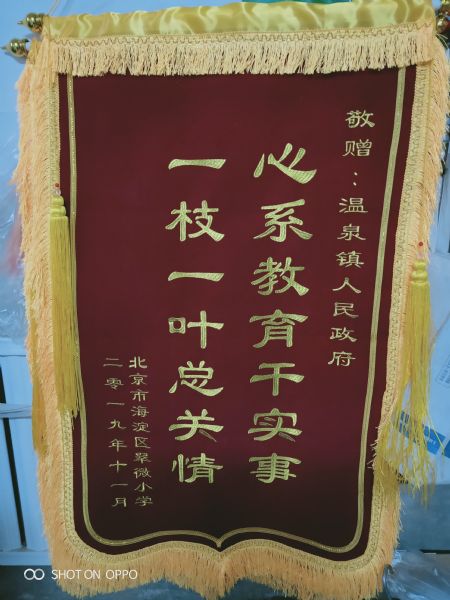 敬赠：温泉镇人民政府
心系教育干实事
一枝一叶总关情
北京市海淀区翠微小学
二零一九年十一月
SHOT ON OPPO